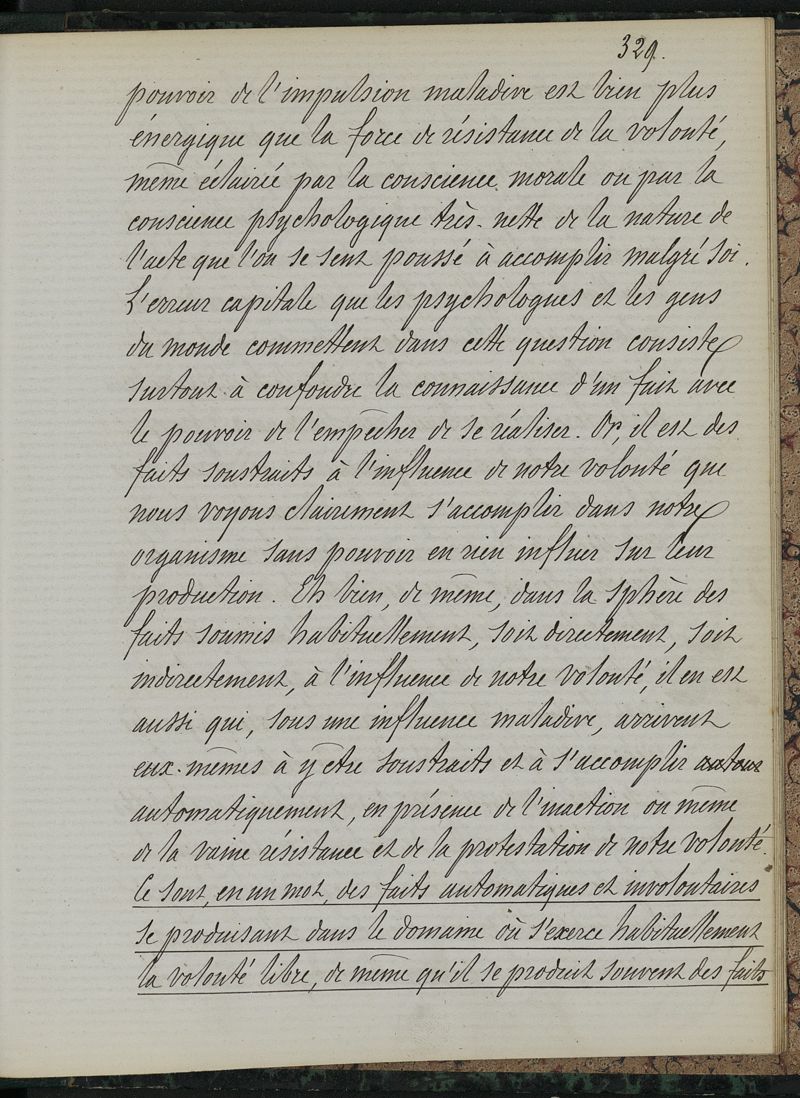 329.
pouvoir de l'impulsion maladive est bien plus
énergique que la force de résistance de la volonté,
même éclairée par la conscience morale ou par la
conscience psychologique très-nette de la nature de
l'acte que l'on se sent poussé à accomplir malgré soi.
L'erreur capitale que les psychologues et les gens
du monde commettent dans cette question consiste
surtout à confondre la connaissance d'un fait avec
le pouvoir de l'empêcher de se réaliser. Or, il est des
faits soustraits à l'influence de notre volonté que
nous voyons clairement s'accomplir dans notre
organisme sans pouvoir en rien influer sur leur
production. Eh bien, de même, dans la sphère des
faits soumis habituellement, soit directement, soit
indirectement, à l'influence de notre volonté, il en est
aussi qui, sous une influence maladive, arrivent
eux-mêmes à y être soustraits et à s'accomplir
automatiquement, en présence de l'inaction ou même
de la vaine résistance et de la protestation de notre volonté.
Ce sont, en un mot, des faits automatiques et involontaires
se produisant dans le domaine où s'exerce habituellement
la volonté libre, de même qu'il se produit souvent des faits